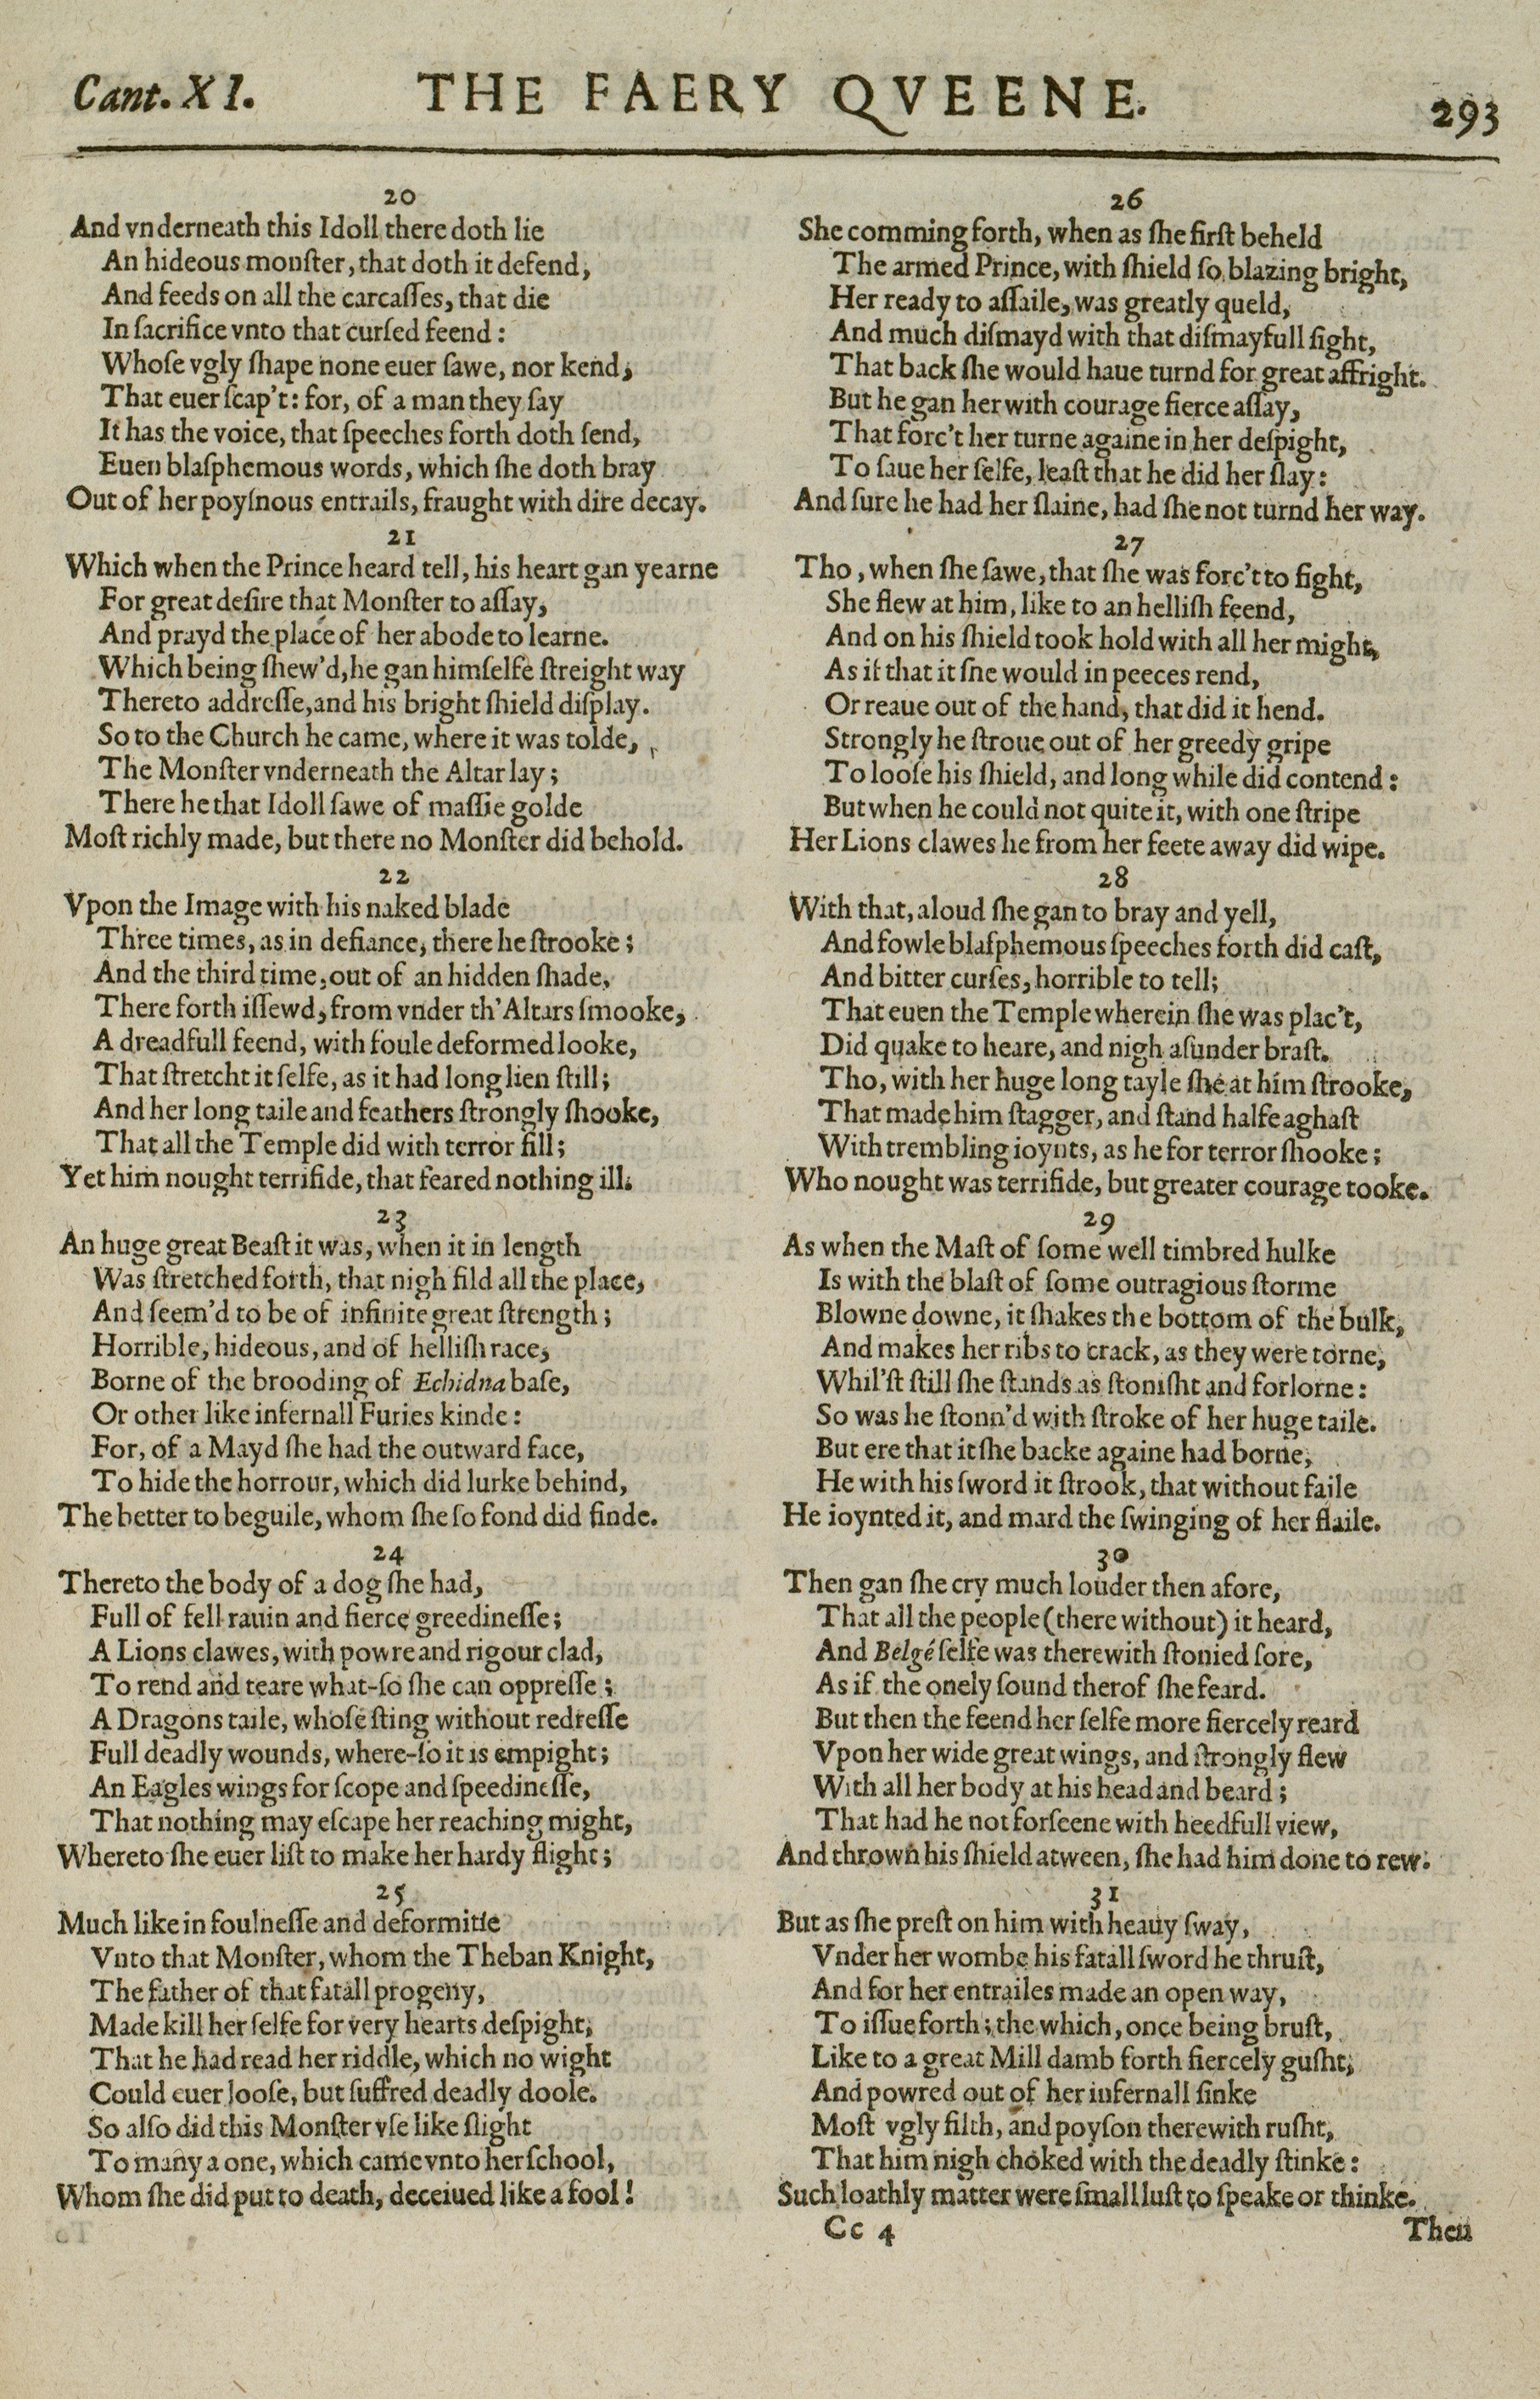 Cant. XI. THE FAERY QVEENE. 293
20
And vnderneath this Idoll there doth lie
An hideous monſter, that doth it defend,
And feeds on all the carcaſſes, that die
In ſacrifice vnto that curſed feend:
Whoſe vgly ſhape none euer ſawe, nor kend,
That euer ſcap't: for, of a man they ſay
It has the voice, that ſpeeches forth doth ſend,
Euen blaſphemous words, which ſhe doth bray
Out of her poyſnous entrails, fraught with dire decay.
21
Which when the Prince heard tell, his heart gan yearne
For great deſire that Monſter to aſſay,
And prayd the place of her abode to learne.
Which being ſhew'd, he gan himſelfe ſtreight way
Thereto addreſſe, and his bright ſhield diſplay.
So to the Church he came, where it was tolde,
The Monſter vnderneath the Altar lay;
There he that Idoll ſawe of maſſie golde
Moſt richly made, but there no Monſter did behold.
22
Vpon the Image with his naked blade
Three times, as in defiance, there he ſtrooke;
And the third time, out of an hidden ſhade,
There forth iſſewd, from vnder th'Altars ſmooke,
A dreadfull feend, with foule deformed looke,
That ſtretcht it ſelfe, as it had long lien ſtill;
And her long taile and feathers ſtrongly ſhooke,
That all the Temple did with terror fill;
Yet him nought terrifide, that feared nothing ill.
23
An huge great Beaſt it was, when it in length
Was ſtretched forth, that nigh fild all the place,
And ſeem'd to be of infinite great ſtrength;
Horrible, hideous, and of helliſh race,
Borne of the brooding of Echidna baſe,
Or other like infernall Furies kinde:
For, of a Mayd ſhe had the outward face,
To hide the horrour, which did lurke behind,
The better to beguile, whom ſhe ſo fond did finde.
24
Thereto the body of a dog ſhe had,
Full of fell rauin and fierce greedineſſe;
A Lions clawes, with powre and rigour clad,
To rend and teare what-ſo ſhe can oppreſſe;
A Dragons taile, whoſe ſting without redreſſe
Full deadly wounds, where-ſo it is empight;
An Eagles wings for ſcope and ſpeedineſſe,
That nothing may eſcape her reaching might,
Whereto ſhe euer liſt to make her hardy flight;
25
Much like in foulneſſe and deformitie
Vnto that Monſter, whom the Theban Knight,
The father of that fatall progeny,
Made kill her ſelfe for very hearts deſpight,
That he had read her riddle, which no wight
Could euer looſe, but ſuffred deadly doole.
So alſo did this Monſter vſe like ſlight
To many a one, which came vnto her ſchool,
Whom ſhe did put to death, deceiued like a fool!
26
She comming forth, when as ſhe firſt beheld
The armed Prince, with ſhield ſo blazing bright,
Her ready to aſſaile, was greatly queld,
And much diſmayd with that diſmayfull ſight,
That back ſhe would haue turnd for great affright.
But he gan her with courage fierce aſſay,
That forc't her turne againe in her deſpight,
To ſaue her ſelfe, leaſt that he did her ſlay:
And ſure he had her ſlaine, had ſhe not turnd her way.
27
Tho, when ſhe ſawe, that ſhe was forc't to fight,
She flew at him, like to an helliſh feend,
And on his ſhield took hold with all her might,
As if that it ſhe would in peeces rend,
Or reaue out of the hand, that did it hend.
Strongly he ſtroue out of her greedy gripe
To looſe his ſhield, and long while did contend:
But when he could not quite it, with one ſtripe
Her Lions clawes he from her feete away did wipe.
28
With that, aloud ſhe gan to bray and yell,
And fowle blaſphemous ſpeeches forth did caſt,
And bitter curſes, horrible to tell;
That euen the Temple wherein ſhe was plac't,
Did quake to heare, and nigh aſunder braſt.
Tho, with her huge long tayle ſhe at him ſtrooke,
That made him ſtagger, and ſtand halfe aghaſt
With trembling ioynts, as he for terror ſhooke;
Who nought was terrifide, but greater courage tooke.
29
As when the Maſt of ſome well timbred hulke
Is with the blaſt of ſome outragious ſtorme
Blowne downe, it ſhakes the bottom of the bulk,
And makes her ribs to crack, as they were torne,
Whil'ſt ſtill ſhe ſtands as ſtoniſht and forlorne:
So was he ſtonn'd with ſtroke of her huge taile.
But ere that it ſhe backe againe had borne,
He with his ſword it ſtrook, that without faile
He ioynted it, and mard the ſwinging of her flaile.
30
Then gan ſhe cry much louder then afore,
That all the people (there without) it heard,
And Belgé ſelfe was therewith ſtonied ſore,
As if the onely ſound therof ſhe feard.
But then the feend her ſelfe more fiercely reard
Vpon her wide great wings, and ſtrongly flew
With all her body at his head and beard;
That had he not forſeene with heedfull view,
And thrown his ſhield atween, ſhe had him done to rew.
31
But as ſhe preſt on him with heauy ſway,
Vnder her wombe his fatall ſword he thruſt,
And for her entrailes made an open way,
To iſſue forth; the which, once being bruſt,
Like to a great Mill damb forth fiercely guſht,
And powred out of her infernall ſinke
Moſt vgly filth, and poyſon therewith ruſht,
That him nigh choked with the deadly ſtinke:
Such loathly matter were ſmall luſt to ſpeake or thinke.
Cc 4 Then